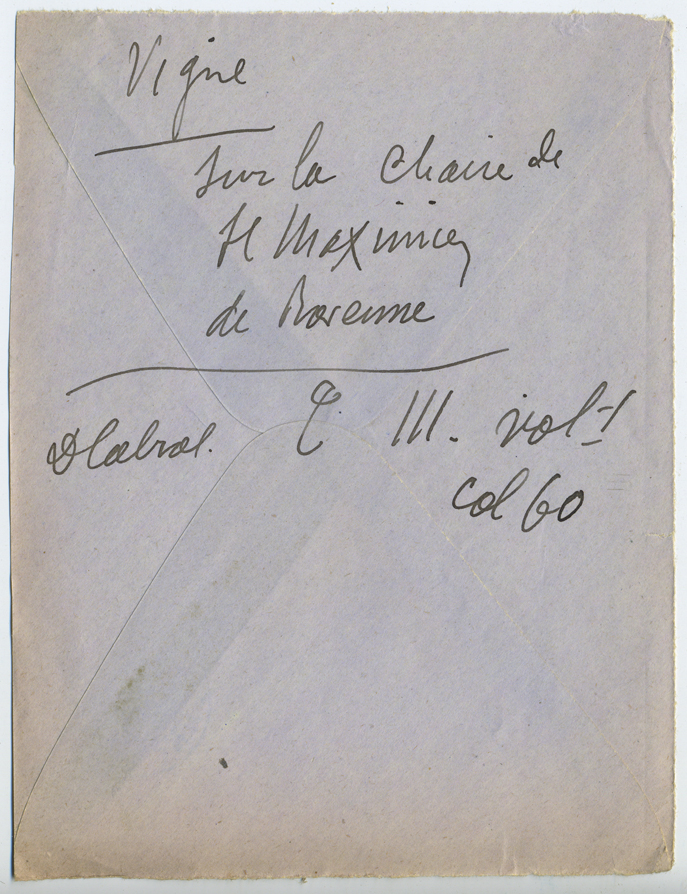 Vigne
sur la chaire de
St Maximien
de Ravenne
D Cabrol. T. III. vol 1
col 60